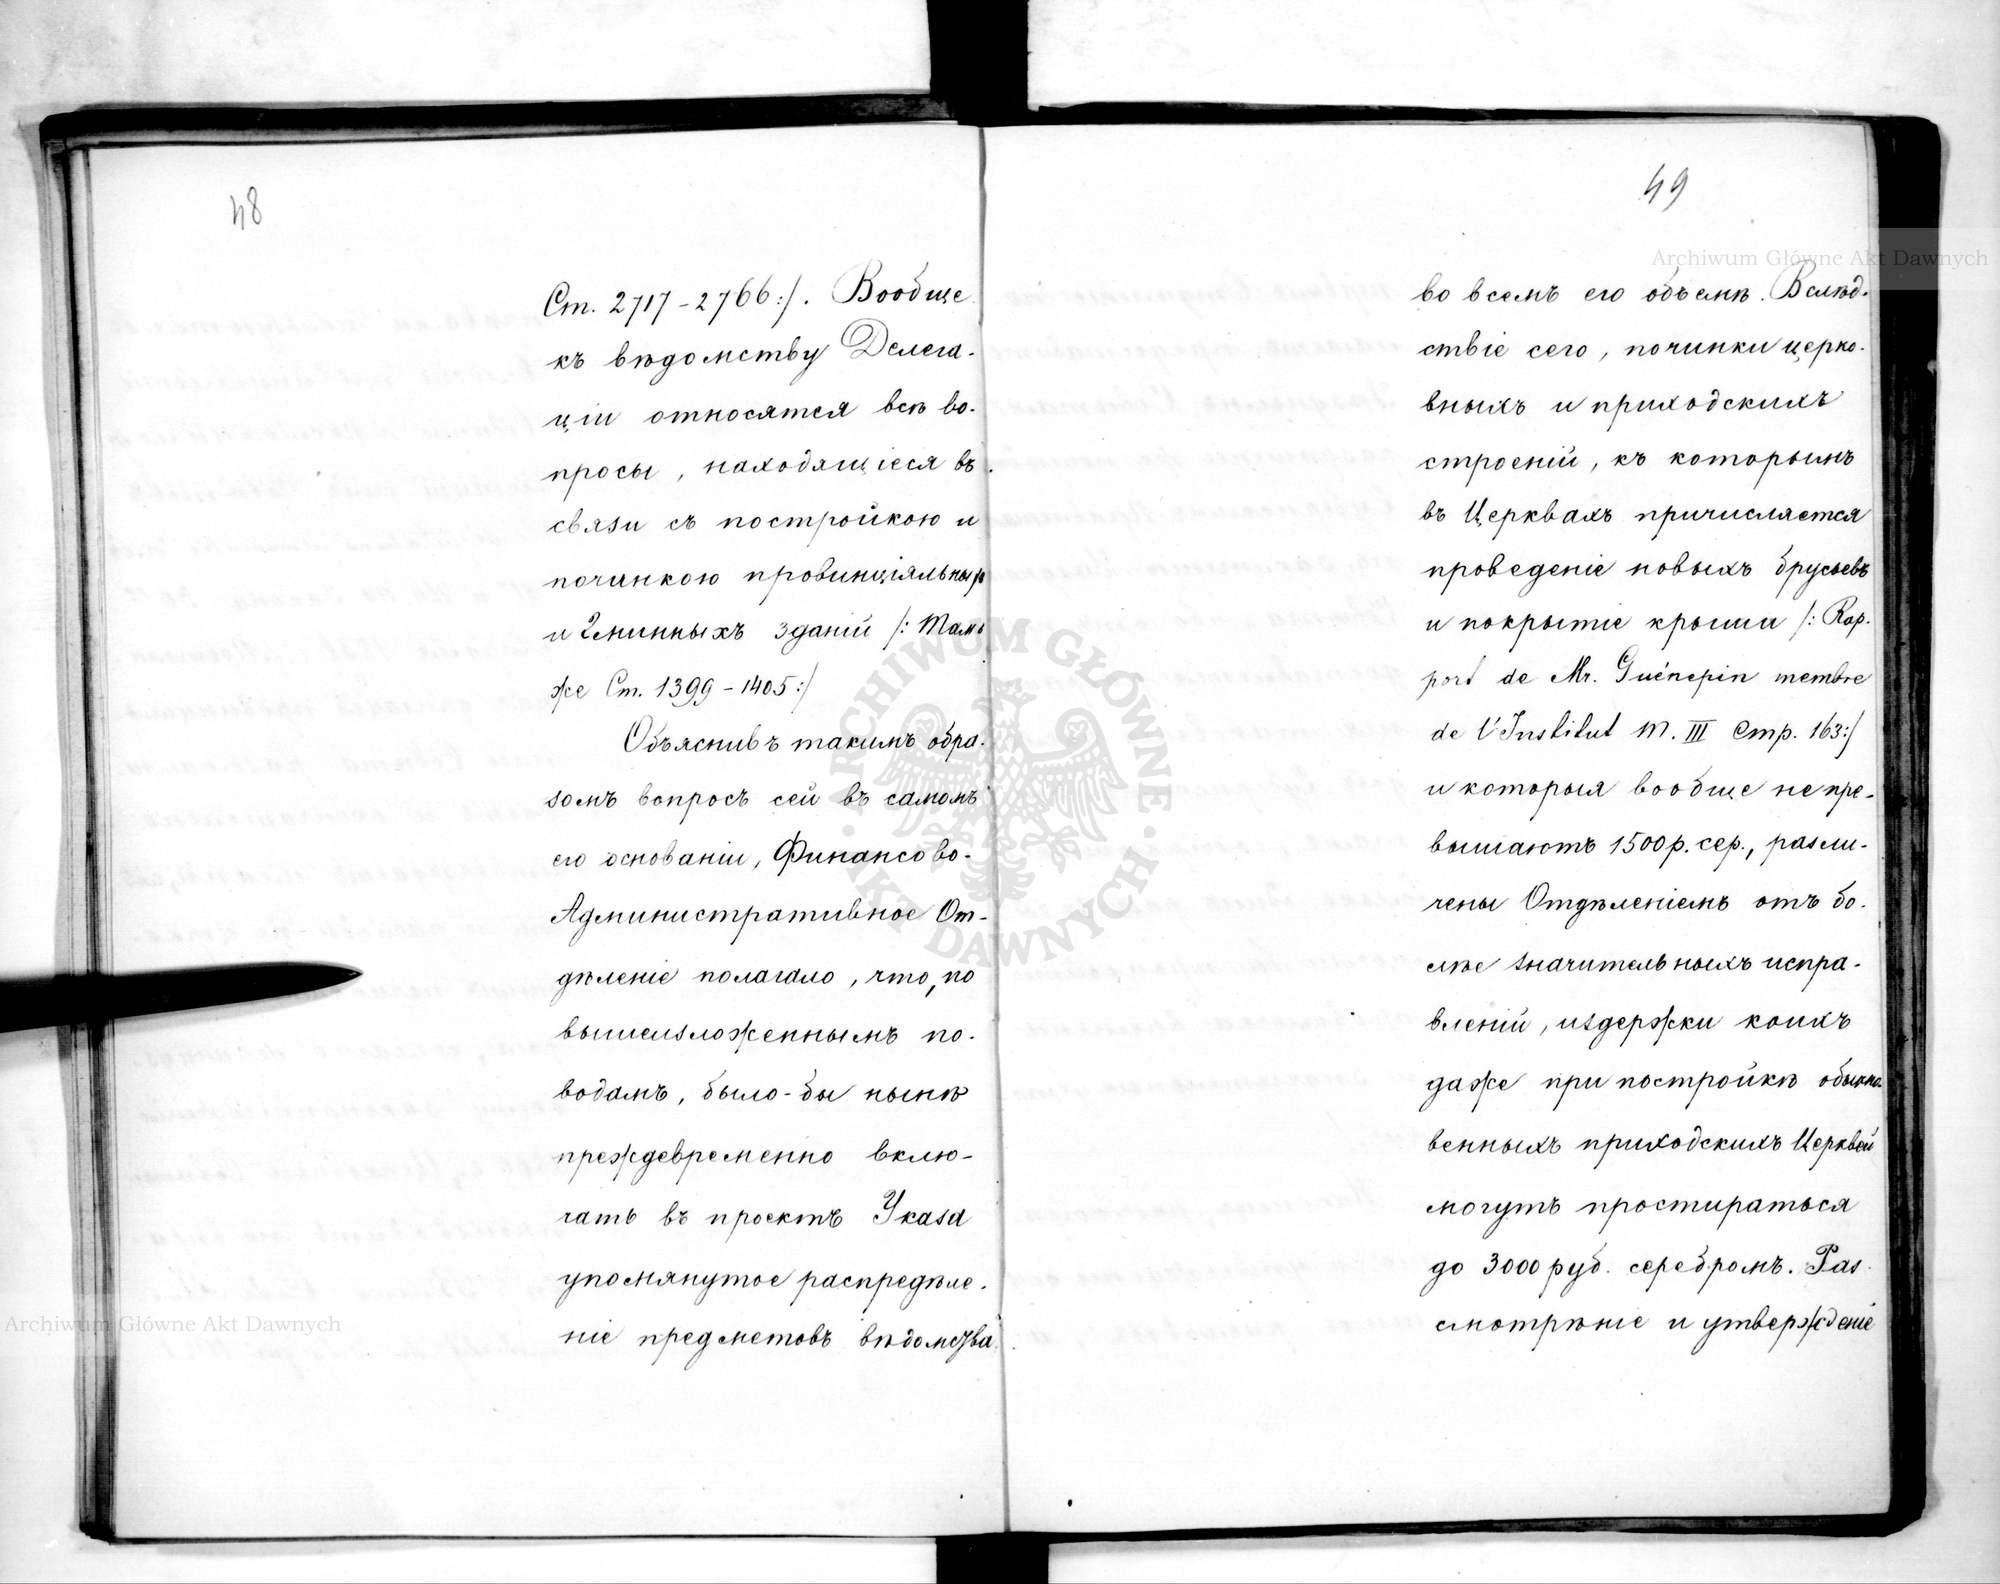 48
Ст. 2717-2766:/. Вообще
къ вѣдомству Делега-
ціи относятся всѣ во-
просы, находящіеся въ
связи съ постройкою и
починкою провинціяльныхъ
и Гминныхъ зданій /: Тамъ
же Ст. 1399-1405:/
Объяснивъ такимъ обра-
зомъ вопросъ сей въ самомъ
его основаніи, Финансово-
Административное От-
дѣленіе полагало, что, по
вышеизложеннымъ по-
водамъ, было-бы нынѣ
преждевременно вклю-
чать въ проектъ Указа
упомянутое распредѣле-
ніе предметовъ вѣдомства
49
во всемъ его объемѣ. Вслѣд-
ствіе сего, починки церко-
вныхъ и приходскихъ
строеній, къ которымъ
въ Церквахъ причисляется
проведеніе новыхъ брусьевъ
и покрытіе крыши /: Rap-
port de Mr. Guénepin membre
de l'Institut Т. III Стр. 163:/
и которыя вообще не пре-
вышаютъ 1500 р. сер., разли-
чены Отдѣленіемъ отъ бо-
лѣе значительныхъ испра-
вленій, издержки коихъ
даже при постройкѣ обыкно-
венныхъ приходскихъ Церквей
могутъ простираться
до 3000 руб. серебромъ. Раз-
смотрѣніе и утвержденіе
Archiwum Główne Akt Dawnych
Archiwum Główne Akt Dawnych
ARCHIWUM GŁÓWNE AKT DAWNYCH